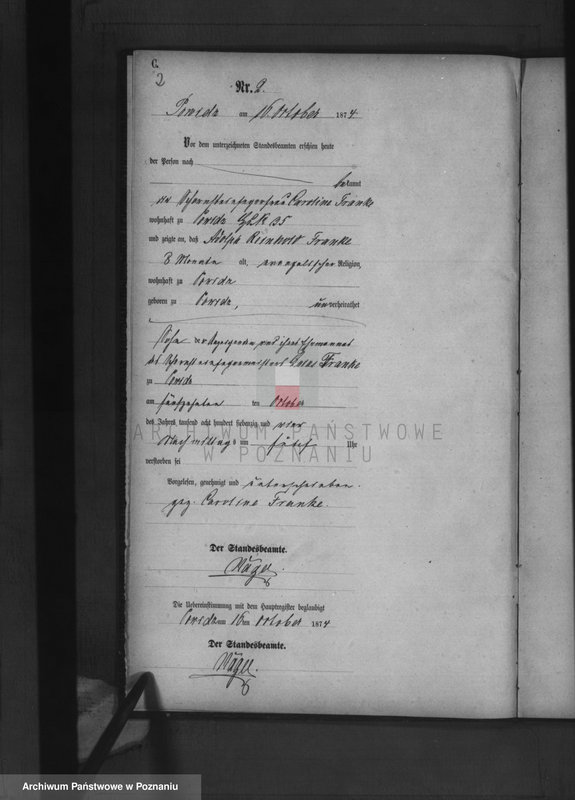 C.
2
Nr. 2.
Powidz am 16 October 1874
Vor dem unterzeichneten Standesbeamten erschien heute
der Person nach
bekannt
die Schornsteinfegerfrau Caroline Franke
wohnhaft zu Powidz 35
und zeigte an, daß Adolph Reinhold Franke
8 Monate alt, evangelischer Religion,
wohnhaft zu Powidz
geboren zu Powidz, unverheirathet
Sohn der Anzeigenden und ihres Ehemannes
des Schornsteinfegermeisters Franke
zu Powidz
am fünfzehnten ten October
des Jahres tausend acht hundert siebenzig und vier
Nachmittags um fünf Uhr
verstorben sei
Vorgelesen, genehmigt und unterschrieben
gez. Caroline Franke.
Der Standesbeamte.
Die Uebereinstimmung mit dem Hauptregister beglaubigt
Powidz am 16 ten October 1874
Der Standesbeamte.
ARCHIWUM PAŃSTWOWE
W POZNANIU
Archiwum Państwowe w Poznaniu